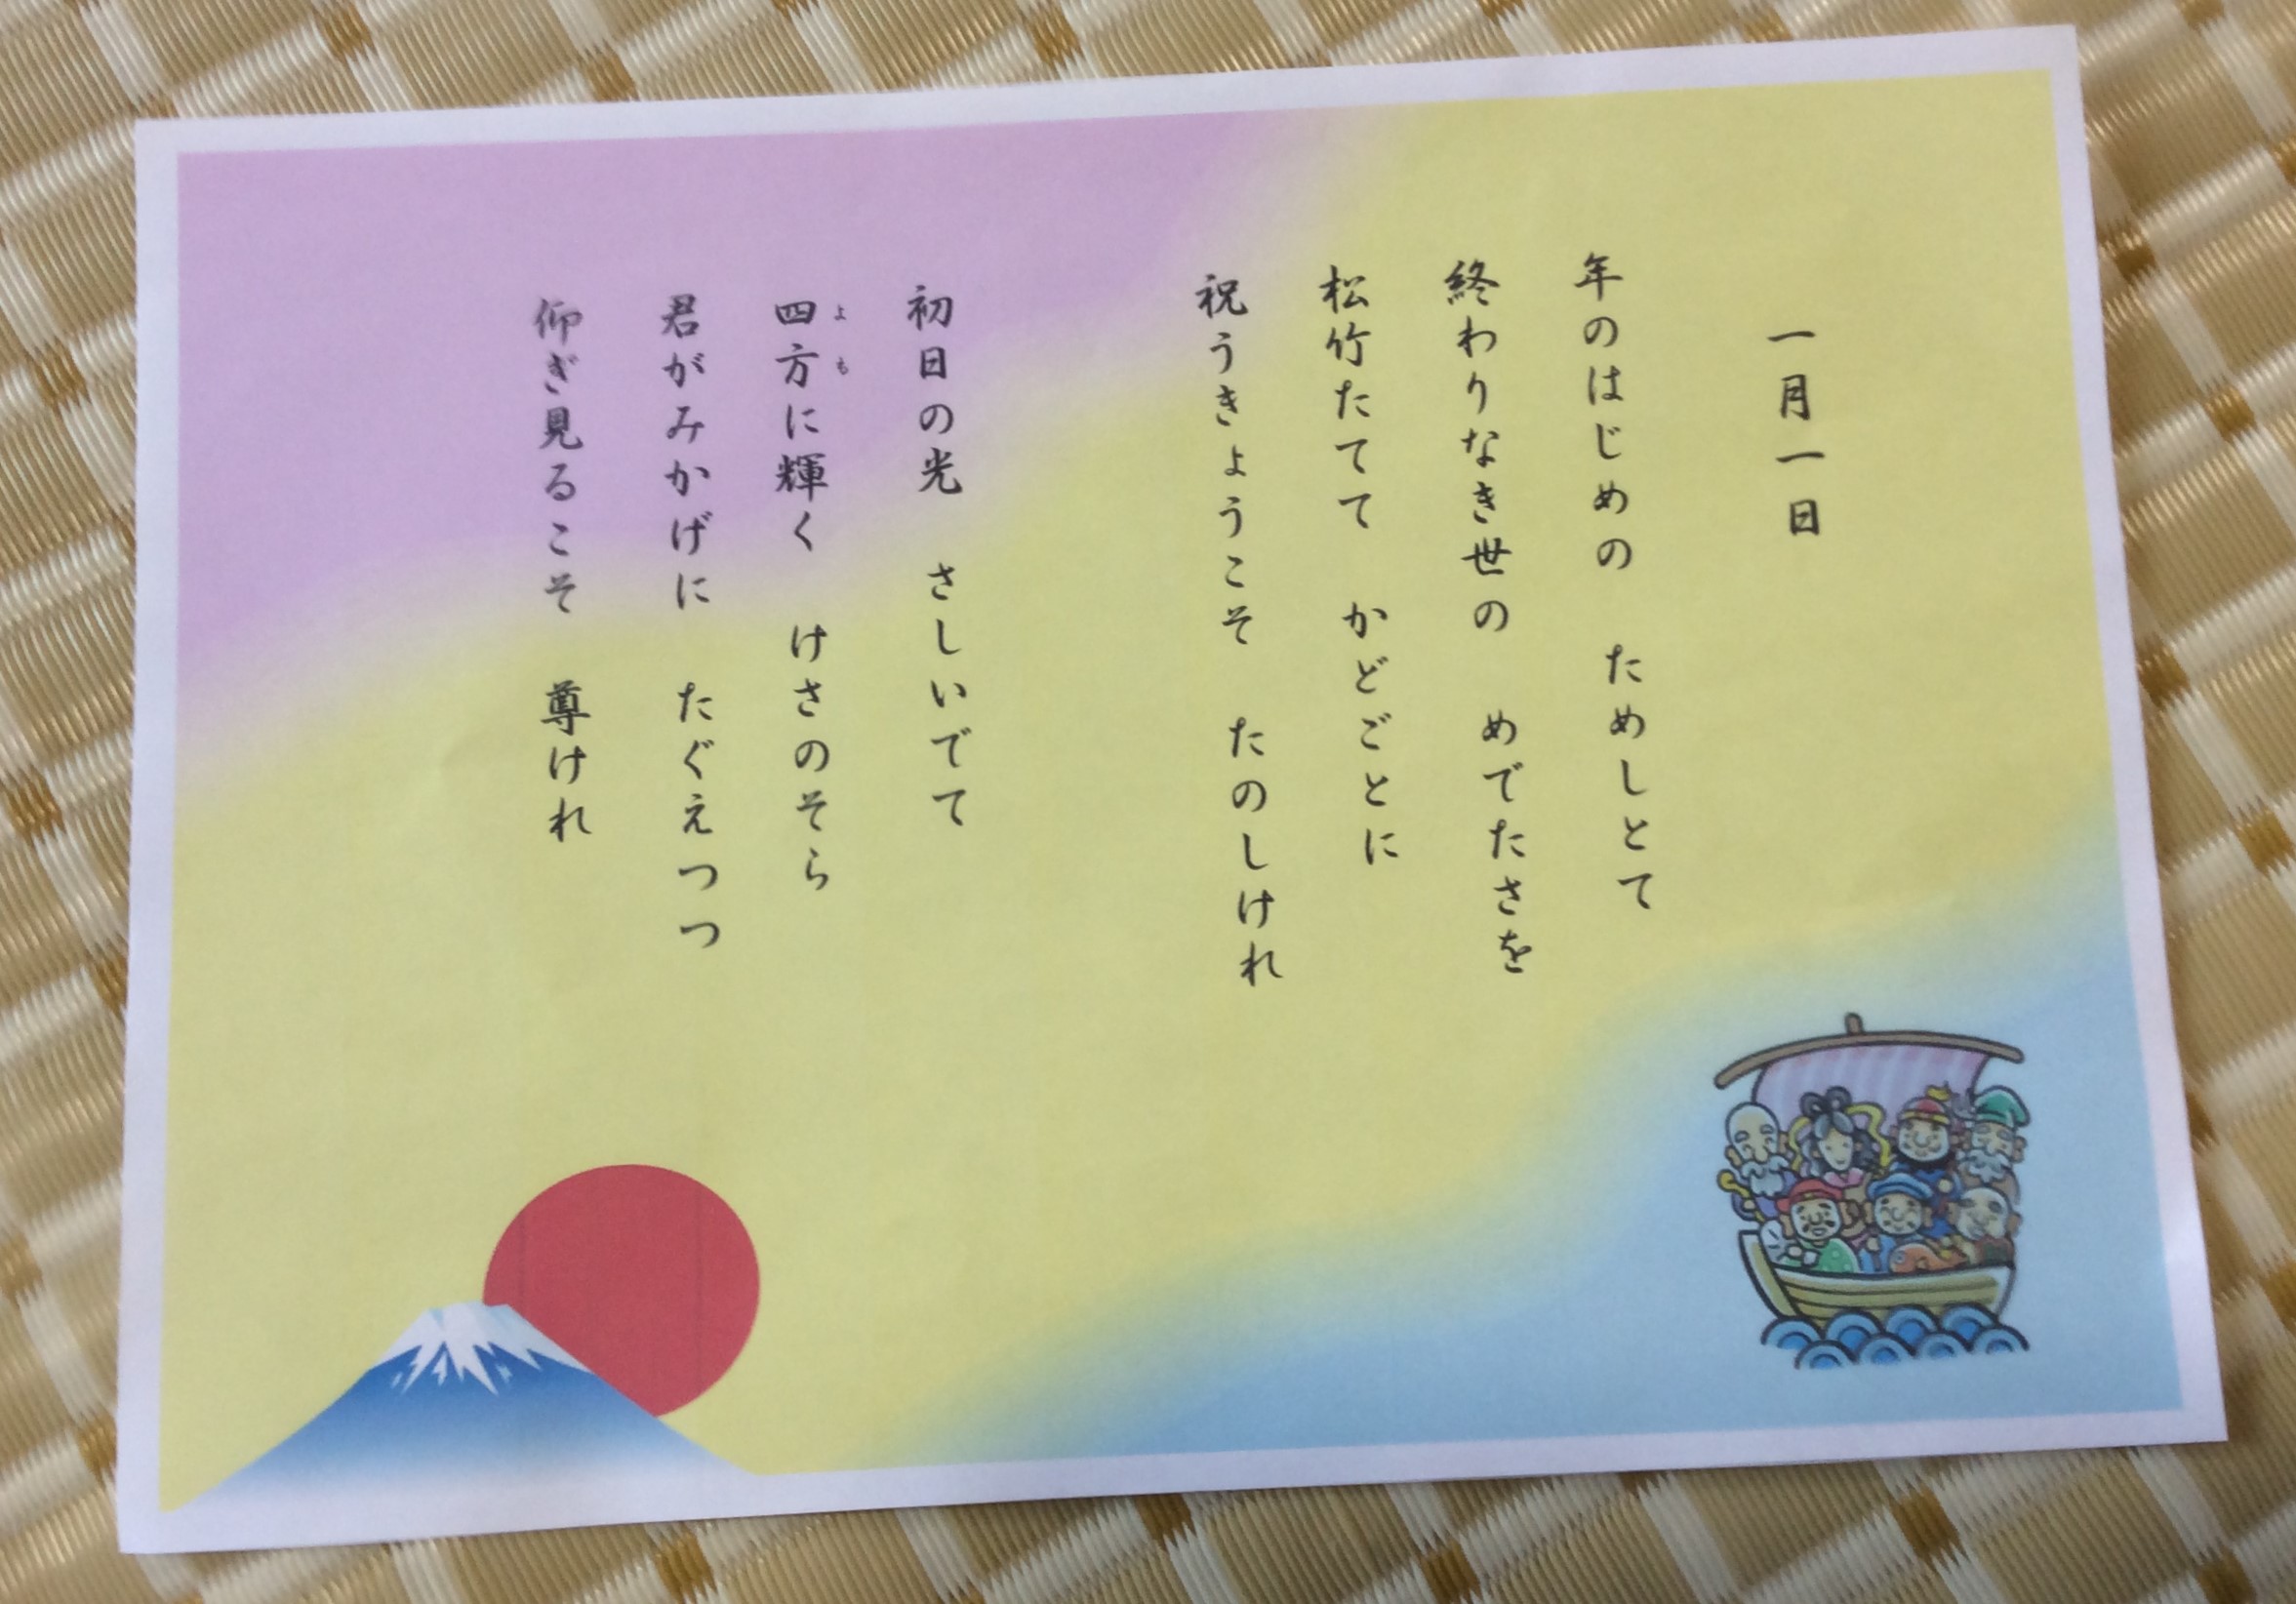 一月一日
年のはじめの　ためしとて
終わりなき世の　めでたさを
松竹たてて　かどごとに
祝うきょうこそ　たのしけれ
初日の光　さしいでて
四方に輝く　けさのそら
よも
君がみかげに　たぐえつつ
仰ぎ見るこそ　尊けれ